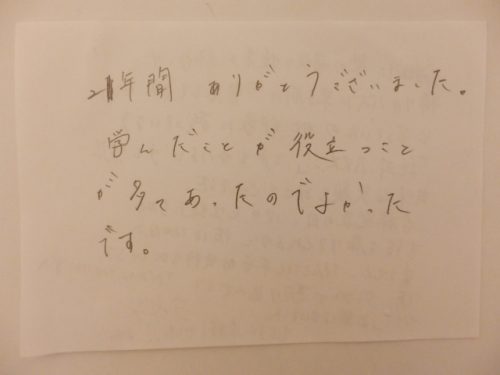 2年間 ありがとうございました。
学んだことが役立つこと
が多くあったのでよかった
です。